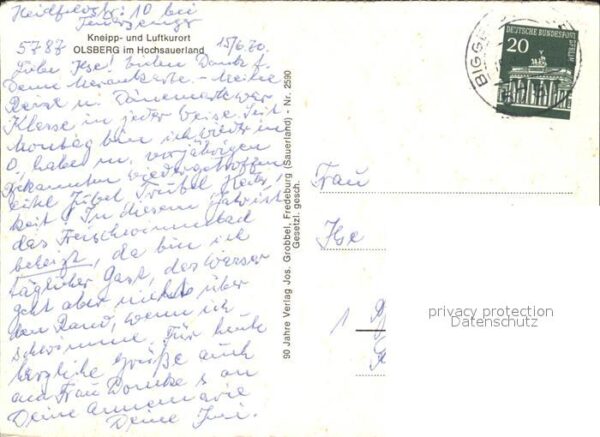 Heidfeldstr. 10 bei
Kneipp- und Luftkurort
5787 OLSBERG im Hochsauerland 15/6.70.
Liebe Ilse! Vielen Dank f.
Deine Meranкarte. - Meine
Reise n. Dänemark war
Klasse in jeder Weise. Seit
Montag bin ich wieder in
O, habe m. vorjährigen
Bekannten wiedergetroffen
eitel Jubel Trubel Heiter,
keit! In diesem Jahr ist
das Freischwimmbad
beheizt, da bin ich
täglicher Gast, das Wasser
geht aber nichts über
den Rand, wenn ich
schwimme. Für heute
herzliche Grüße auch
an Frau Domke & an
Deine Annemarie
Deine
90 Jahre Verlag Jos. Grobbel, Fredeburg (Sauerland) - Nr. 2590
Gesetzl. gesch.
BIGGE
20
DEUTSCHE BUNDESPOST
BERLIN
Frau
Ilse
1
privacy protection
Datenschutz